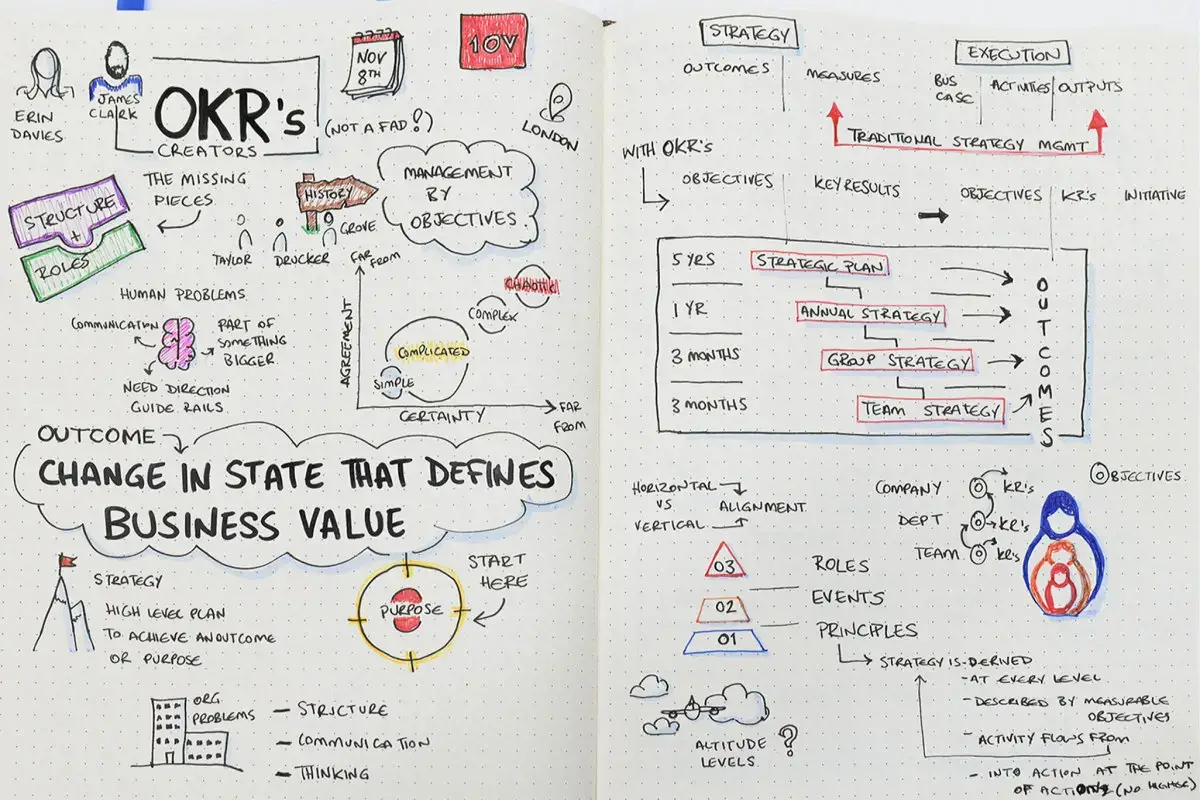 ERIN
DAVIES
JAMES
CLARK
OKR's
CREATORS
(NOT A FAD!)
NOV
8TH
10V
LONDON
STRUCTURE
+
ROLES
THE MISSING
PIECES
HISTORY
TAYLOR
DRUCKER
GROVE
MANAGEMENT
BY
OBJECTIVES
HUMAN PROBLEMS
COMMUNICATION
PART OF
SOMETHING
BIGGER
NEED DIRECTION
GUIDE RAILS
FAR
FROM
AGREEMENT
CHAOTIC
COMPLEX
COMPLICATED
SIMPLE
CERTAINTY
FAR
FROM
OUTCOME
CHANGE IN STATE THAT DEFINES
BUSINESS VALUE
STRATEGY
HIGH LEVEL PLAN
TO ACHIEVE AN OUTCOME
OR PURPOSE
PURPOSE
START
HERE
ORG
PROBLEMS
- STRUCTURE
- COMMUNICATION
- THINKING
STRATEGY
EXECUTION
OUTCOMES
MEASURES
BUS
CASE
ACTIVITIES
OUTPUTS
TRADITIONAL STRATEGY MGMT
WITH OKR's
OBJECTIVES
KEY RESULTS
OBJECTIVES
KR's
INITIATIVE
5 YRS
STRATEGIC PLAN
1 YR
ANNUAL STRATEGY
3 MONTHS
GROUP STRATEGY
3 MONTHS
TEAM STRATEGY
OUTCOMES
HORIZONTAL
VS
VERTICAL
ALIGNMENT
COMPANY
O
KR's
DEPT
O
KR's
TEAM
O
KR's
OBJECTIVES
03
ROLES
02
EVENTS
01
PRINCIPLES
STRATEGY IS DERIVED
- AT EVERY LEVEL
- DESCRIBED BY MEASURABLE
OBJECTIVES
- ACTIVITY FLOWS FROM
- INTO ACTION AT THE POINT
OF ACTION (NO HIGHER)
ALTITUDE
LEVELS
?